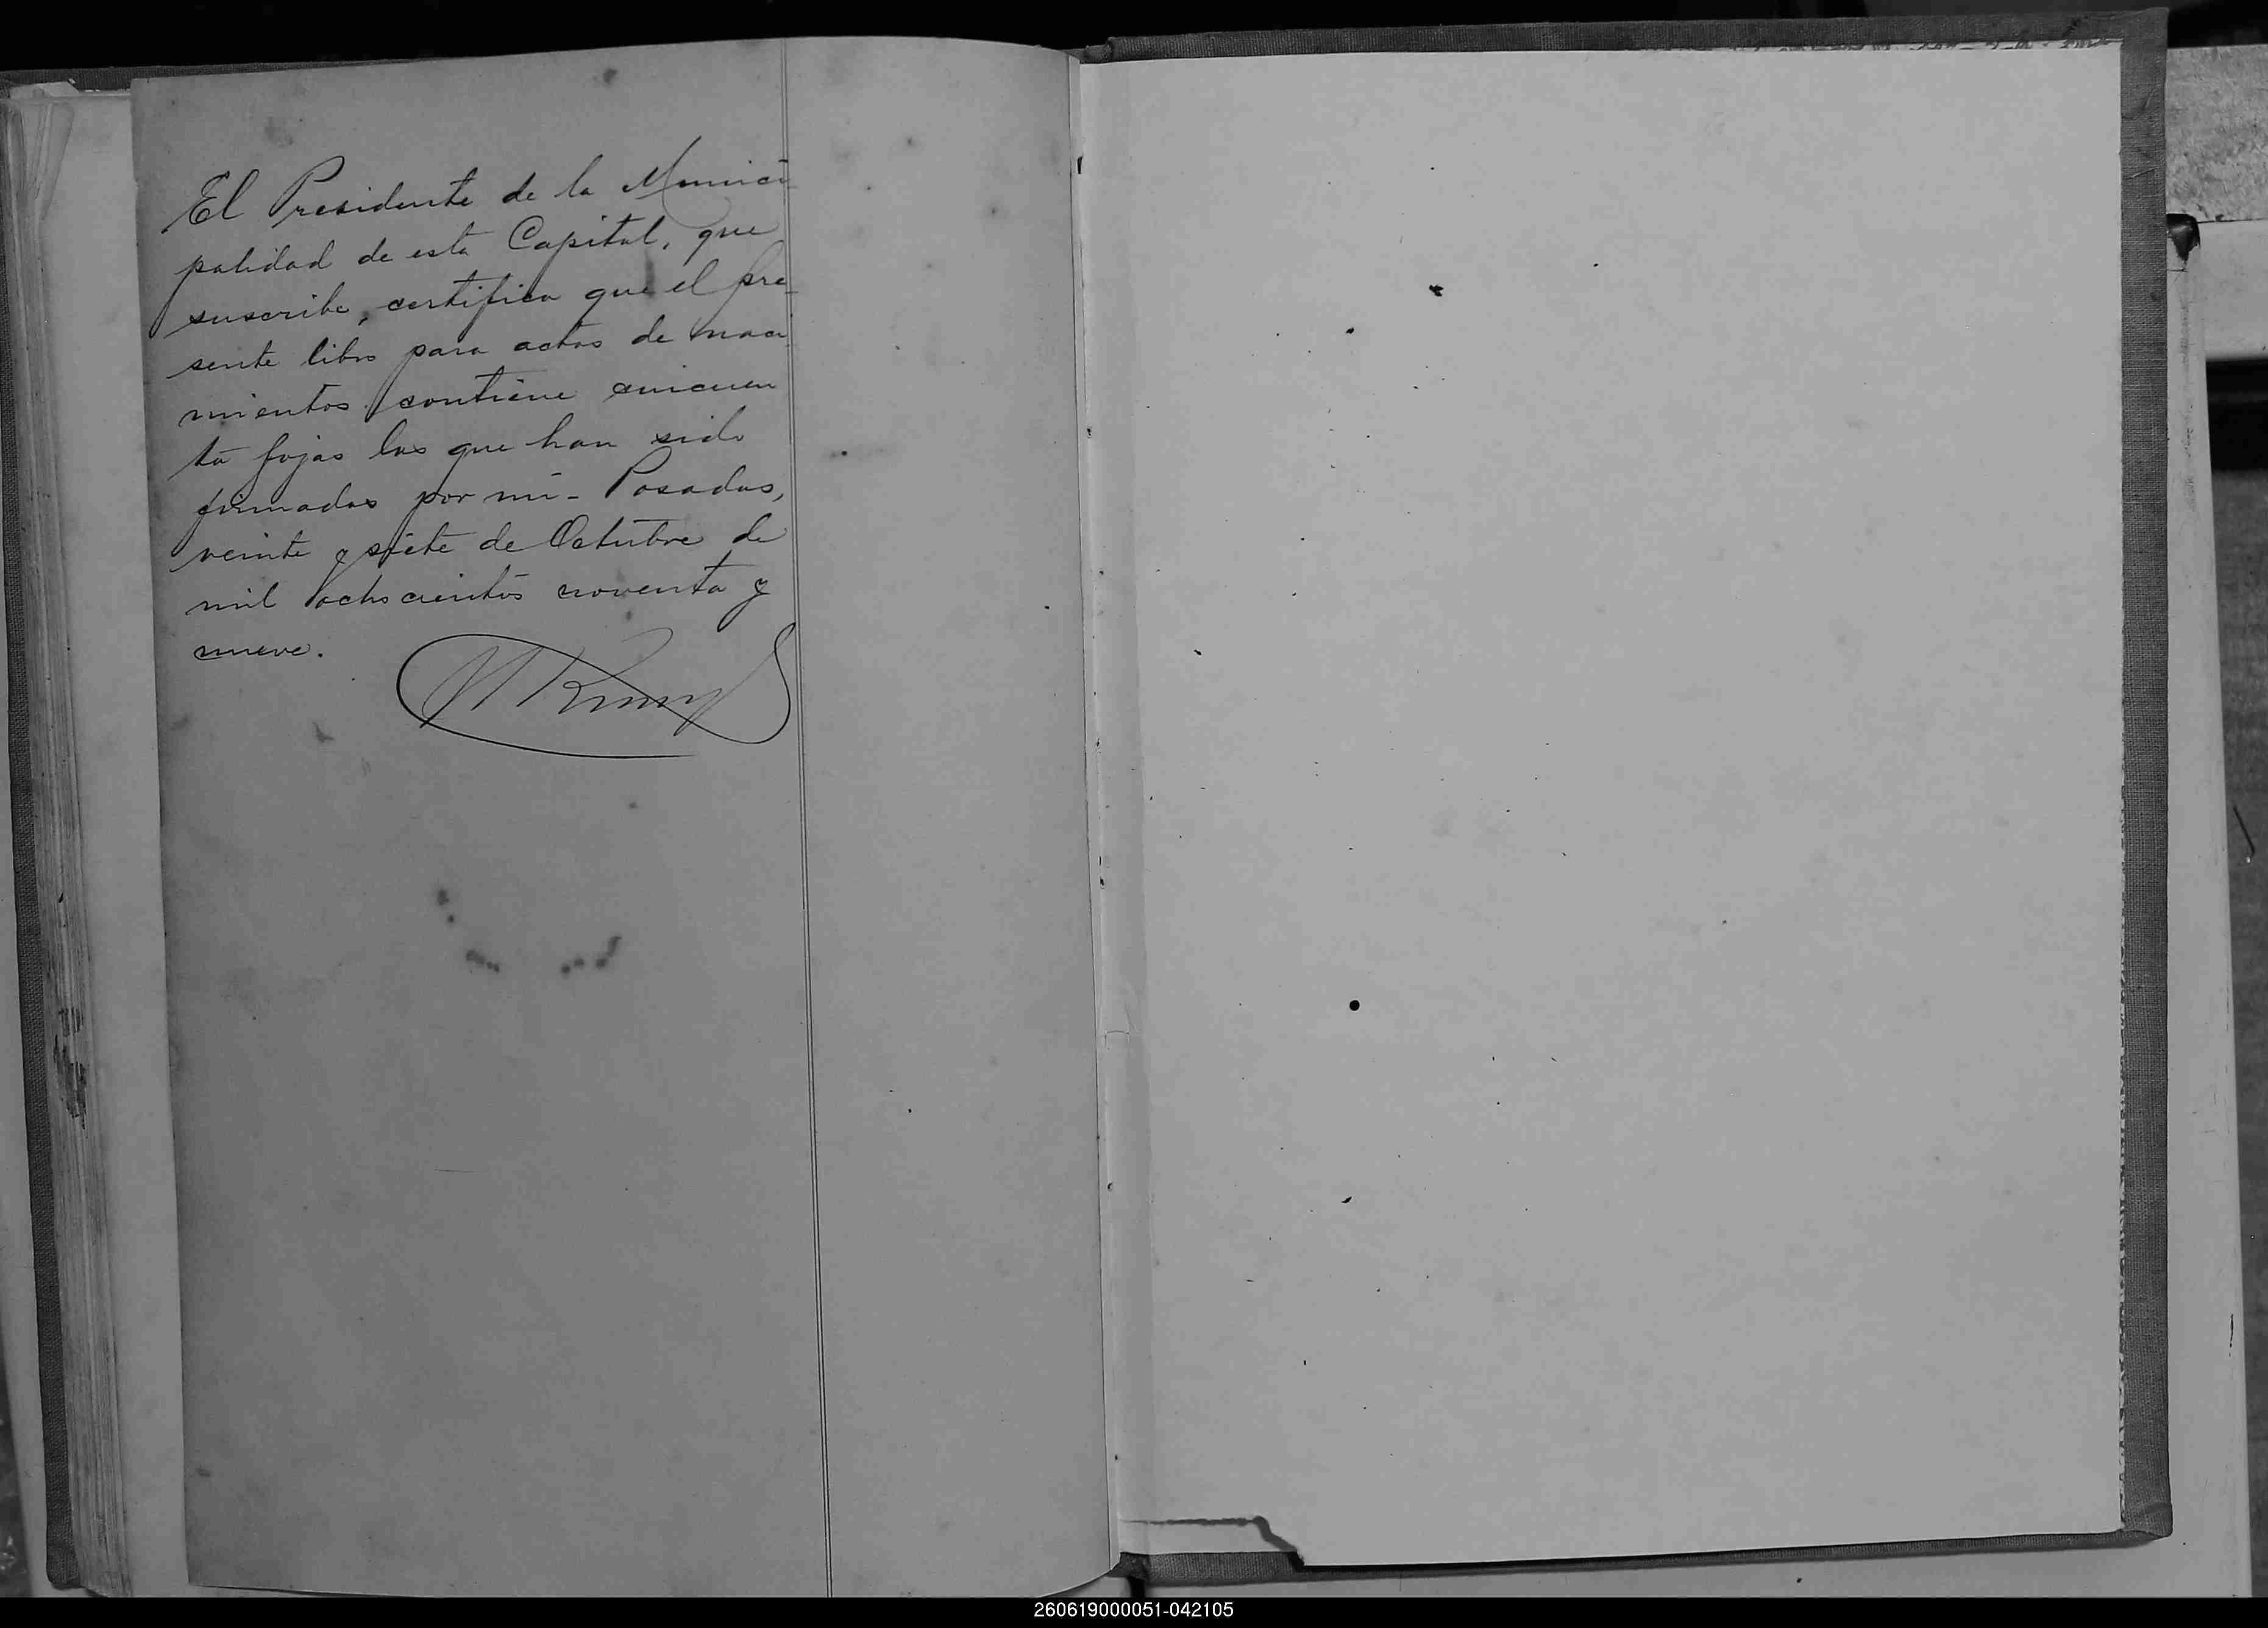 El Presidente de la Munici
palidad de esta Capital, que
suscribe, certifica que el pre-
sente libro para actas de naci
mientos contiene cincuen
ta fojas las que han sido
firmadas por mi - Posadas,
veinte y siete de Octubre de
mil ochocientos noventa y
nueve.
260619000051-042105